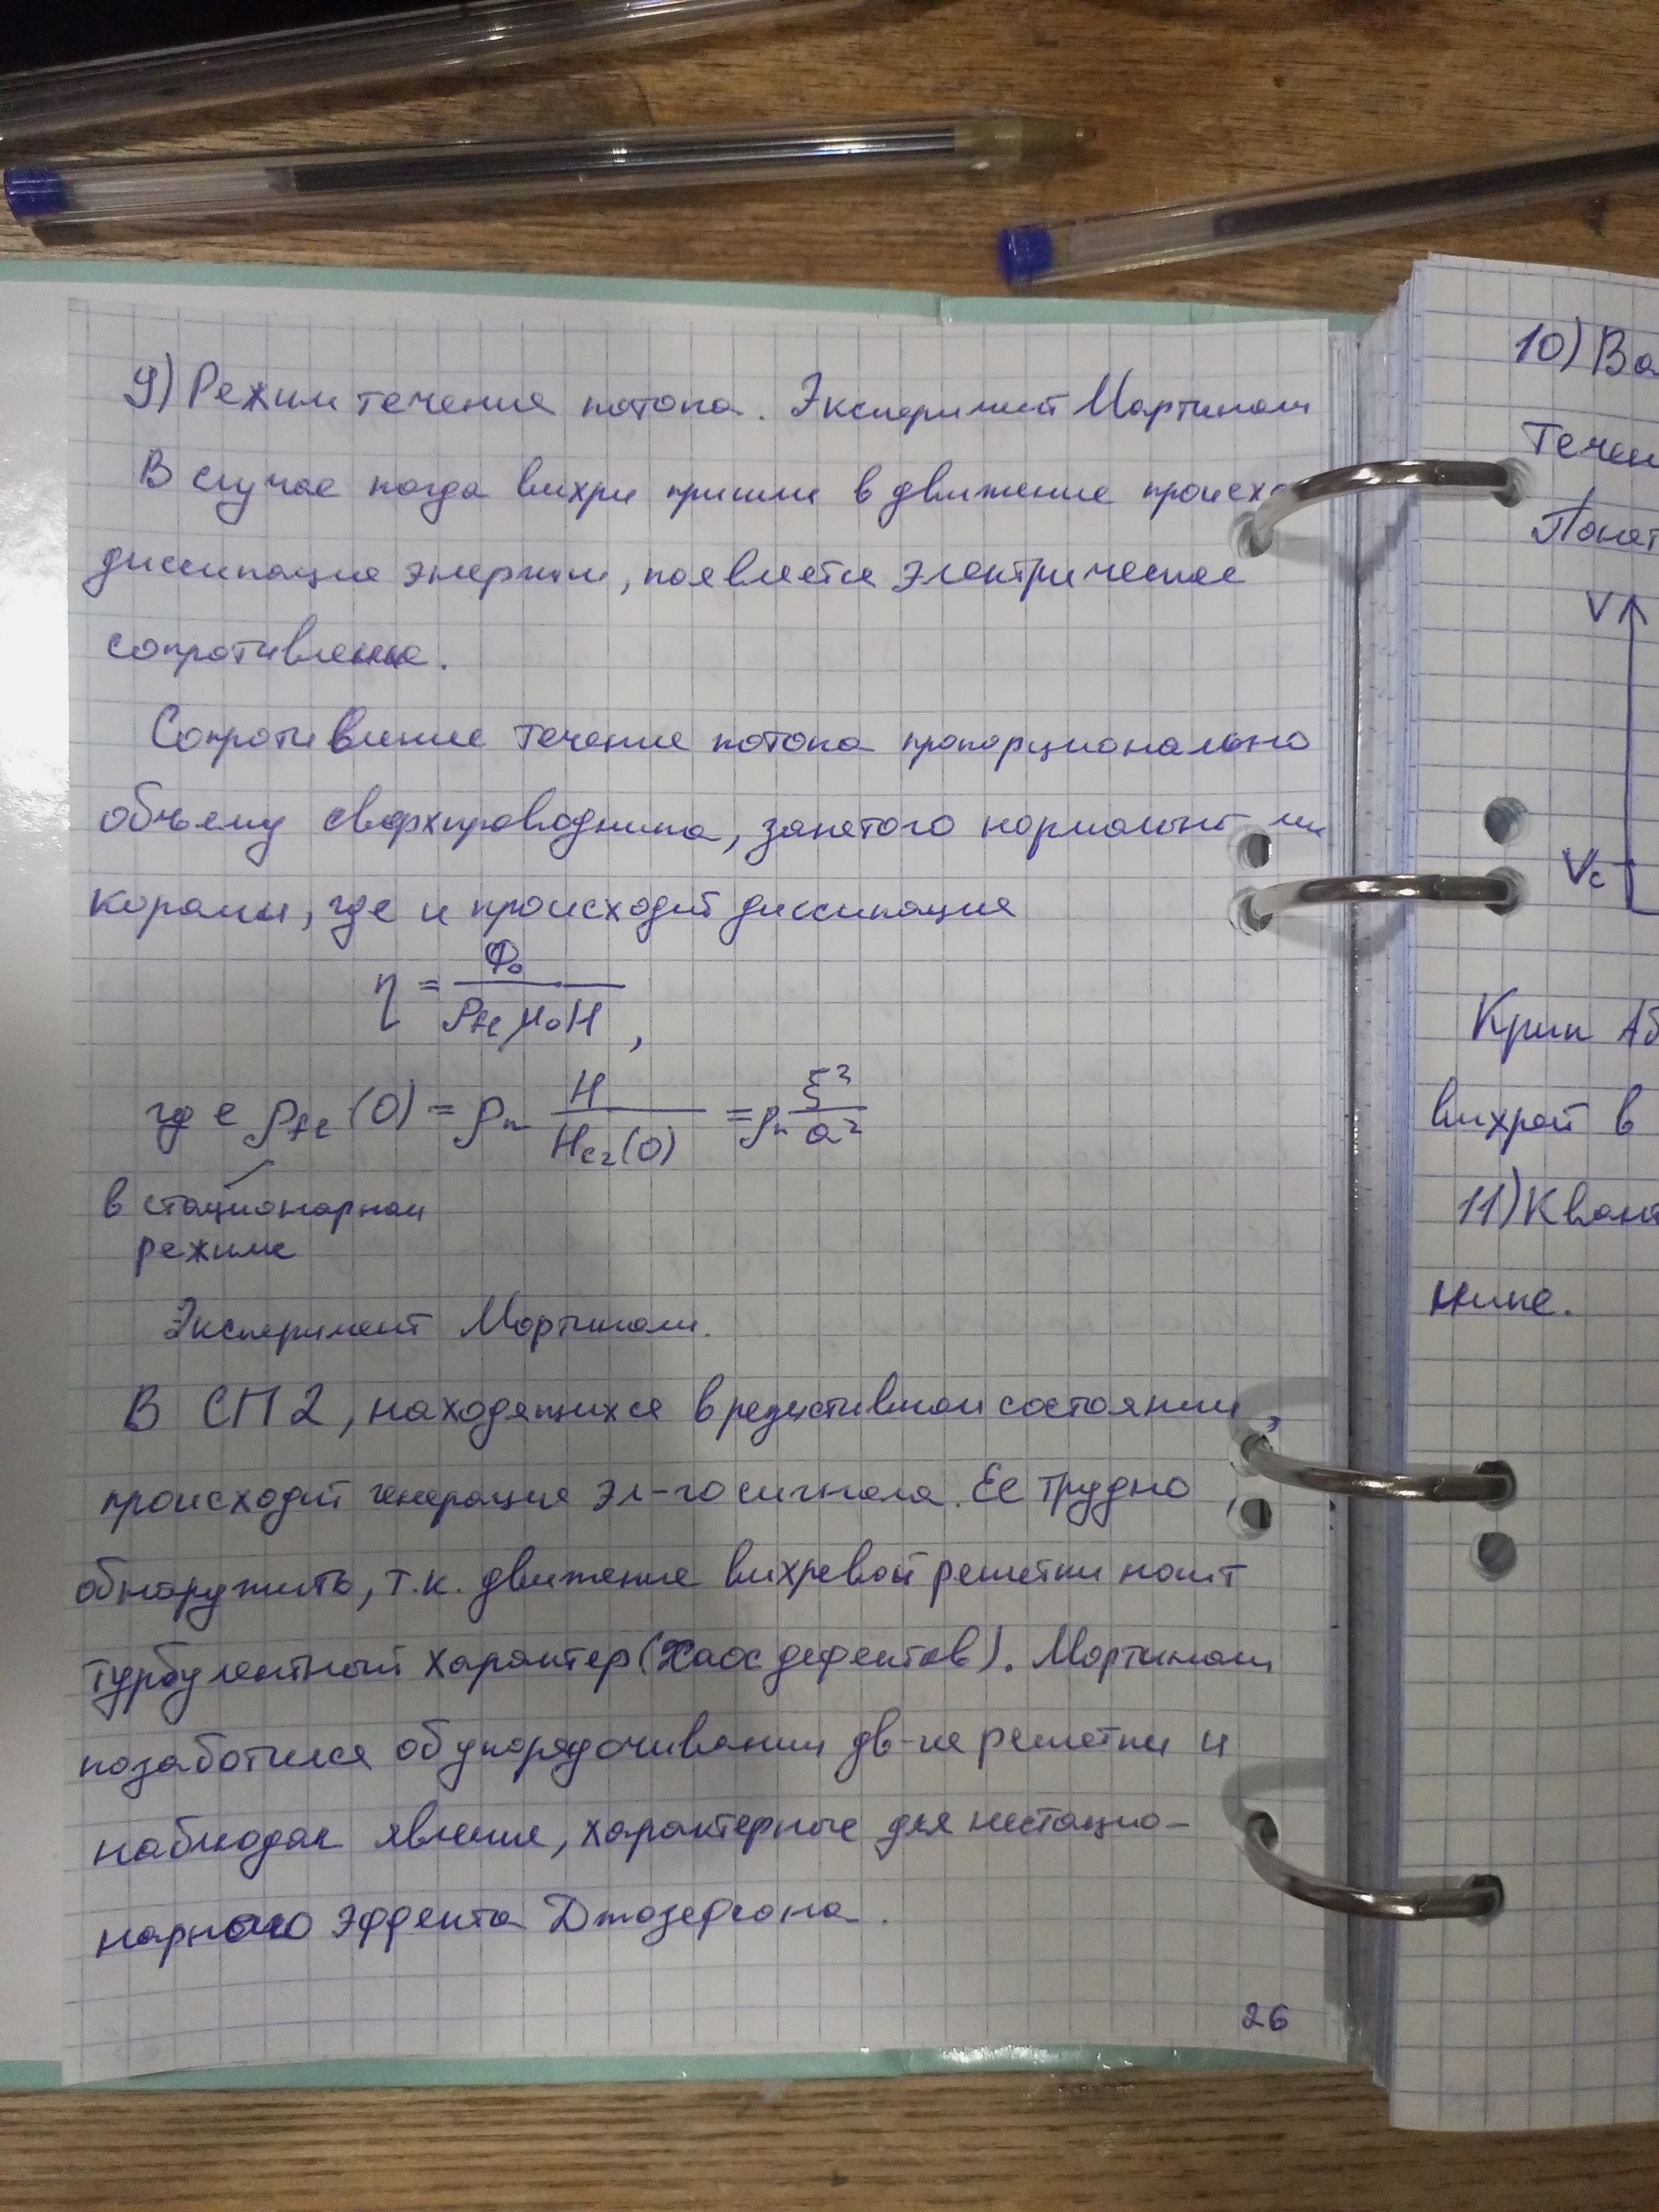 9) Режим течения потока. Эксперимент Мартиноли
В случае когда вихри пришли в движение происхо
диссипация энергии, появляется электрическое
сопротивление.
Сопротивление течения потока пропорционально
объему сверхпроводника, занятого нормальн ми
корами, где и происходит диссипация
η = Φ₀ / ρ_fl μ₀H ,
где ρ_fl (0) = ρ_n H / H_c2(0) = ρ_n ξ² / a²
в стационарном
режиме
Эксперимент Мартиноли.
В СП 2, находящихся в резистивном состоянии,
происходит генерация эл-го сигнала. Ее трудно
обнаружить, т.к. движение вихревой решетки носит
турбулентный характер (хаос дефектов). Мартиноли
позаботился об упорядочивании дв-ия решетки и
наблюдал явления, характерные для нестацио-
нарного эффекта Джозефсона.
26
10) Ва
Течен
Понят
V
Vc
Крип Аб
вихрей в
11) Квант
нике.